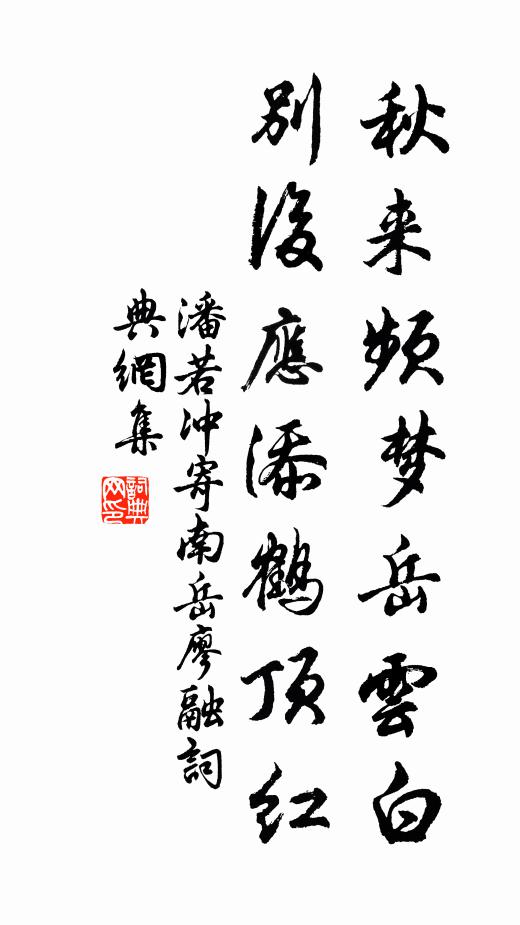 秋来频梦岳雲白
别後應添鶴顶红
潘若冲寄南岳廖融詞
典網集
詞典网印